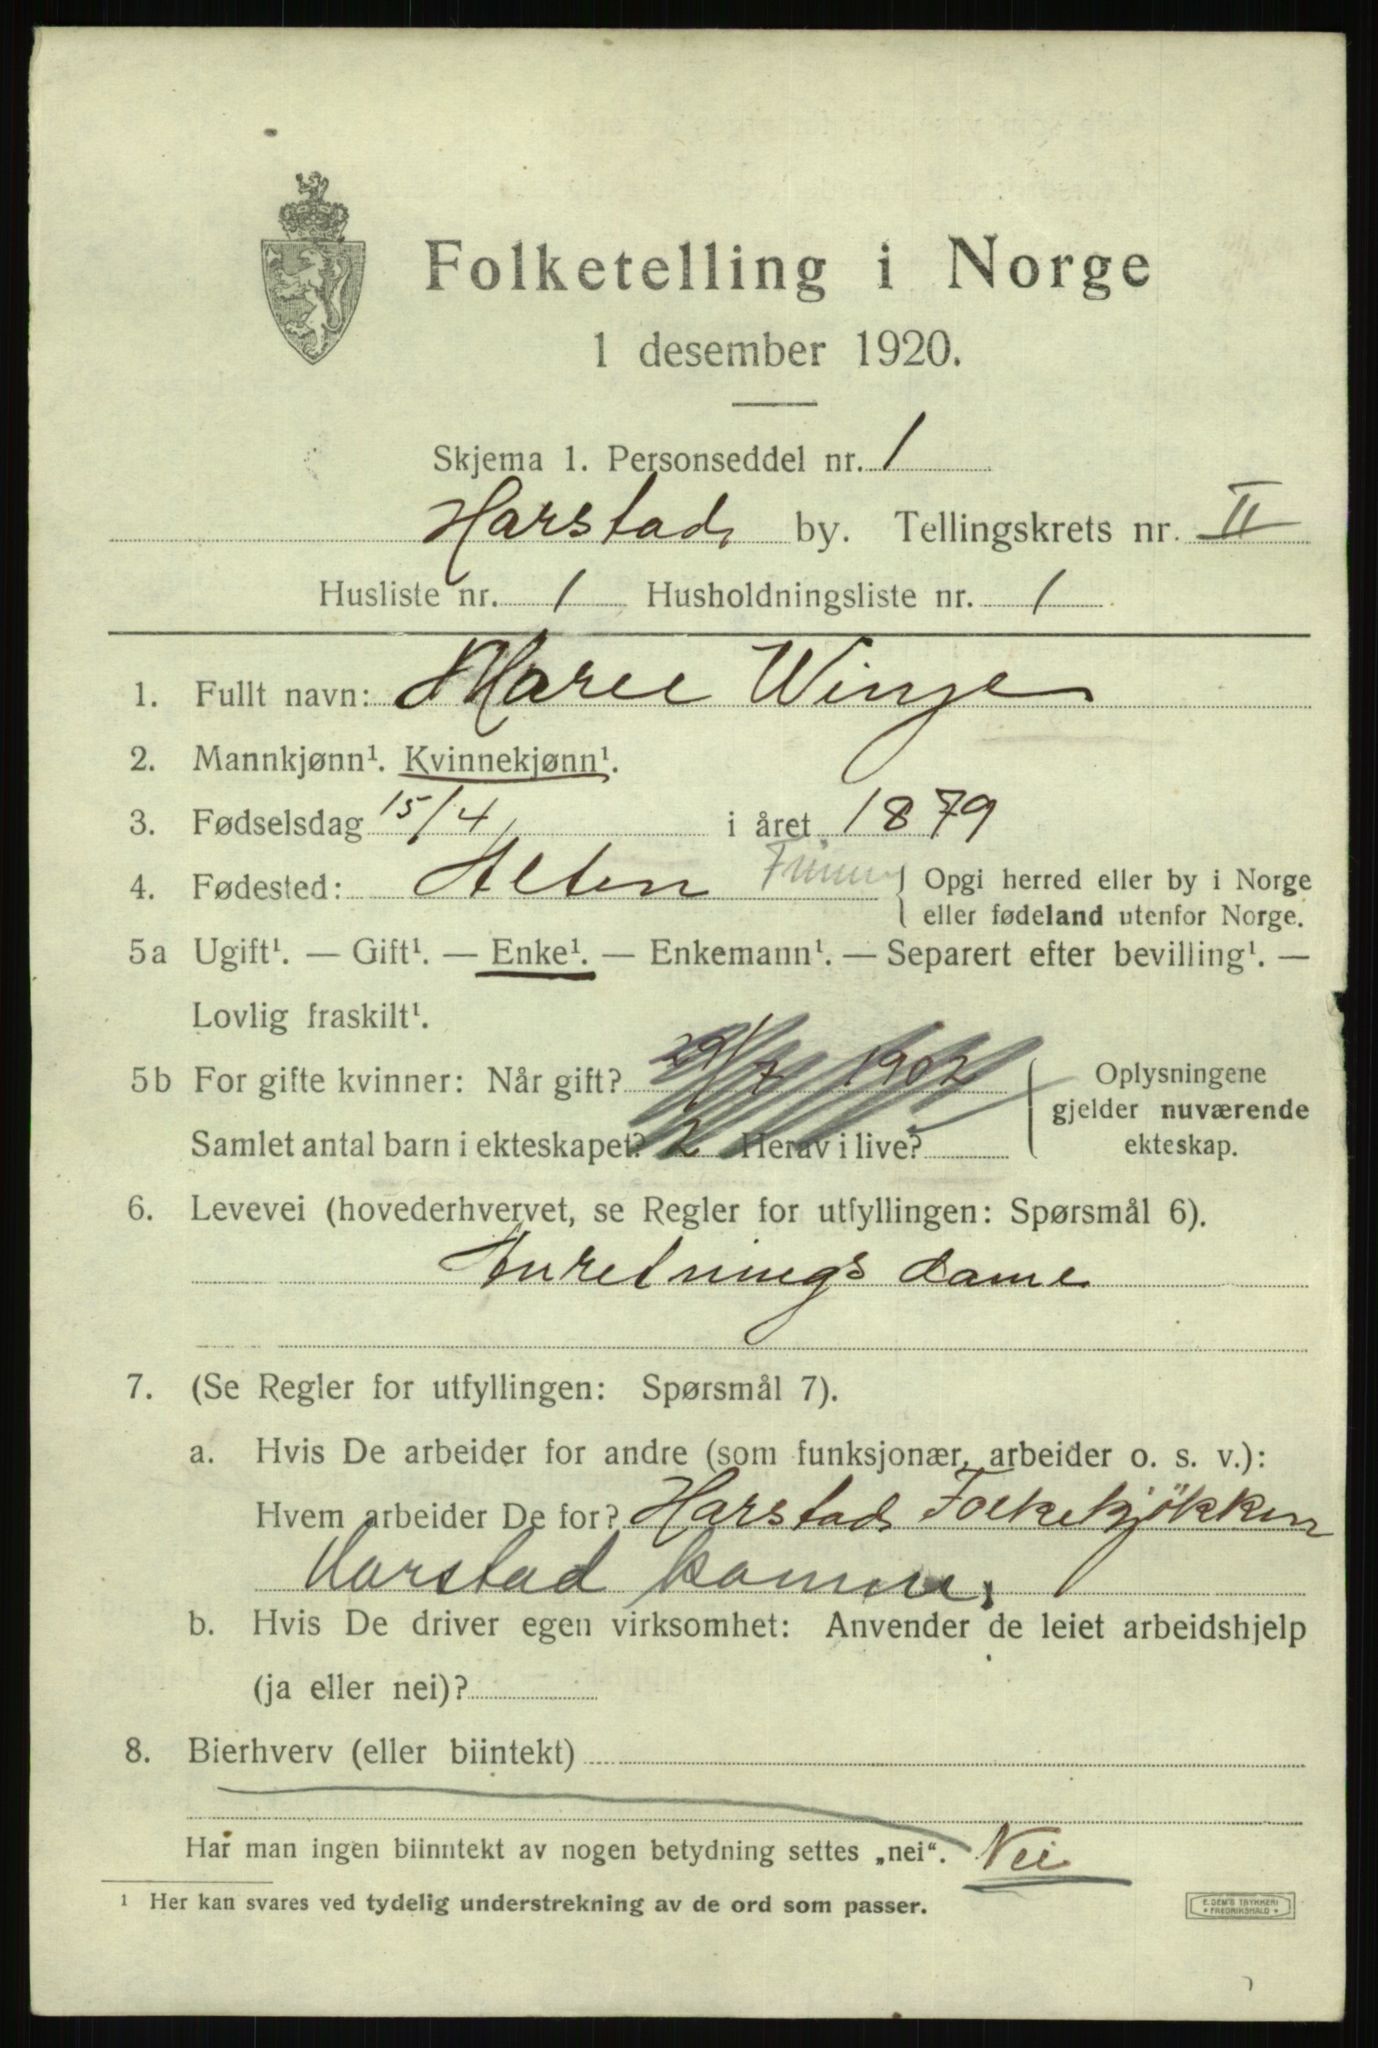 Folketelling i Norge
1 desember 1920.
Skjema 1. Personseddel nr. 1
Harstad by. Tellingskrets nr. II
Husliste nr. 1 Husholdningsliste nr. 1
1. Fullt navn: Marie Winge
2. Mannkjønn¹. Kvinnekjønn¹.
3. Fødselsdag 15/4 i året 1879
4. Fødested: Alten Finnm { Opgi herred eller by i Norge
eller fødeland utenfor Norge.
5a Ugift¹. — Gift¹. — Enke¹. — Enkemann¹. — Separert efter bevilling¹. —
Lovlig fraskilt¹.
5b For gifte kvinner: Når gift? 29/7 1902
Samlet antal barn i ekteskapet? 2 Herav i live?
Oplysningene
gjelder nuværende
ekteskap.
6. Levevei (hovederhvervet, se Regler for utfyllingen: Spørsmål 6).
Anretnings dame
7. (Se Regler for utfyllingen: Spørsmål 7).
a. Hvis De arbeider for andre (som funksjonær, arbeider o. s. v.):
Hvem arbeider De for? Harstads Folkekjøkken
Harstad komm.
b. Hvis De driver egen virksomhet: Anvender de leiet arbeidshjelp
(ja eller nei)?
8. Bierhverv (eller biintekt)
Har man ingen biinntekt av nogen betydning settes „nei“. Nei
¹ Her kan svares ved tydelig understrekning av de ord som passer.
E. DEM'S TRYKKERI
* FREDRIKSHALD *